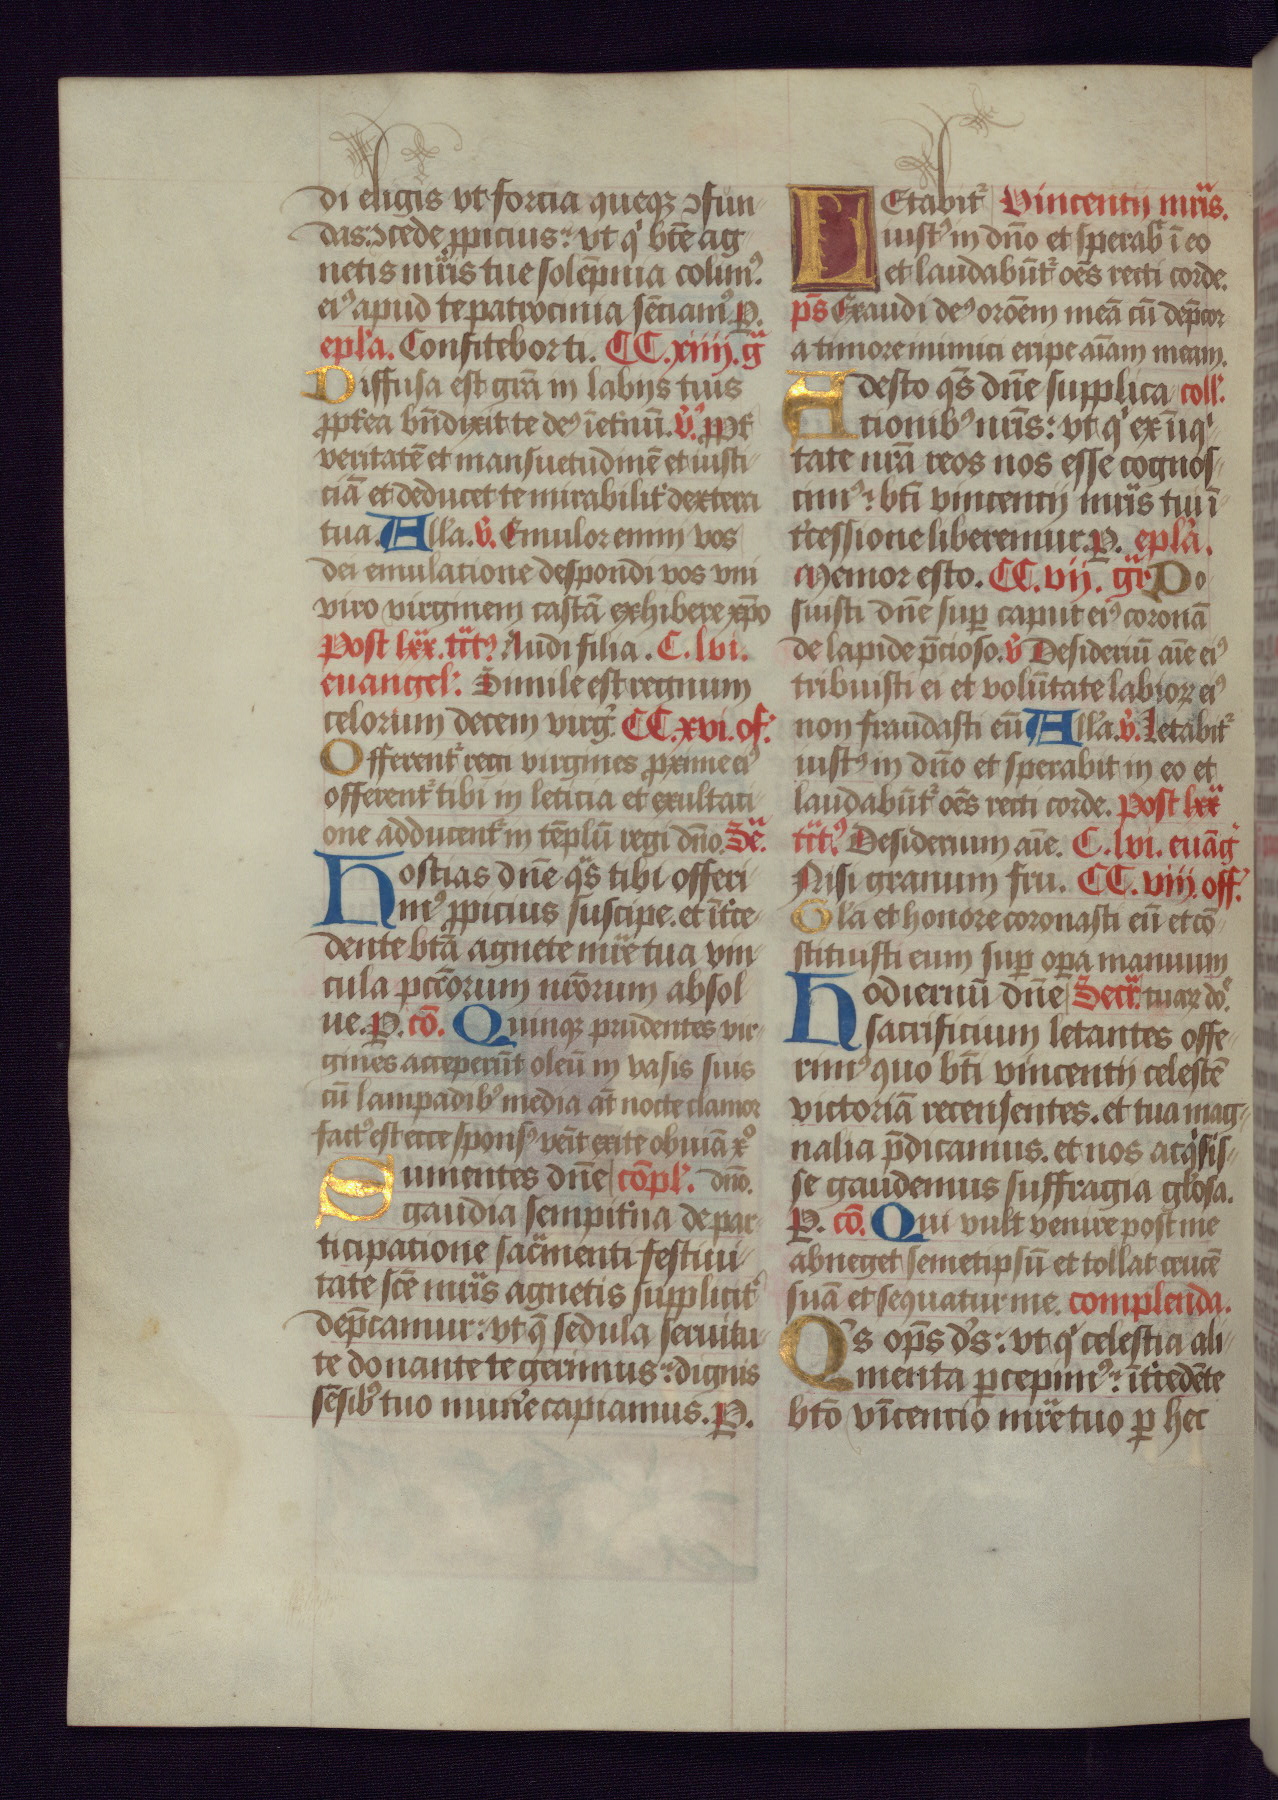 di eligis vt forcia queqꝫ ꝯfun
das: ꝯcede ꝓpicius: vt qͥ btē ag
netis mr̄is tue solēpnia colimꝰ
eiꝰ apud te patrocinia sēciamꝰ P.
epl̄a. Confitebor ti. CC. xiiij. gͣ
Diffusa est grā in labijs tuis
ꝓpt̄ea bn̄dixit te deꝰ ī et̄nū. v̄. ꝓpt̄
veritatē et mansuetudinē et iusti
ciā et deducet te mirabilit̄ dextera
tua. All̄a. v̄. Emulor enim vos
dei emulatione despondi vos vni
viro virginem castā exhibere xp̄o
Post lxx. tc̄tꝰ Audi filia. C. lvi.
euangel: Simile est regnum
celorum decem virḡ. CC. xvi. of:
Offerent᷑ regi virgines ꝓxime eiꝰ
offerent᷑ tibi in leticia et exultaci
one adducent᷑ in tēplū regi dn̄o. Sē.
Hostias dn̄e qͣs tibi offeri
mꝰ ꝓpicius suscipe. et īt̄ce
dente btā agnete mr̄e tua vin
cula pctōrum nr̄orum absol
ue. P. cō. Quinqꝫ prudentes vir
gines acceperūt oleū in vasis suis
cū lampadibꝰ media at̄ nocte clamor
factꝰ est ecce sponsꝰ veīt exite obuiā xꝰ
Sumentes dn̄e cōpl. dn̄o.
gaudia sempit̄na de par
ticipatione sac̄menti festiui
tate scē mr̄is agnetis supplicit̄
dep̄camur: vt q̄ sedula seruitu
te donante te gerimus: dignis
sēsibꝰ tuo mun̄e capiamus. P.
LEtabit᷑ Vincentij mr̄is.
iustꝰ in dn̄o et sperab̄ ī eo
et laudabūt᷑ oēs recti corde.
ps̄ Exaudi deꝰ orōem meā cū dep̄cor
a timore inimici eripe aīam meam.
Adesto qͣs dn̄e supplica coll.
tionibꝰ nr̄is: vt qͥ ex īiqͥ
tate nr̄a reos nos esse cognos
cimꝰ: bt̄i vincentij mr̄is tui ī
t̄cessione liberemur. P. epl̄a.
Memor esto. CC. vij. gͬ Po
suisti dn̄e suꝑ caput eiꝰ coronā
de lapide p̄cioso. v̄ Desideriū aīe eiꝰ
tribuisti ei et volūtate labioꝝ eiꝰ
non fraudasti eū All̄a. v̄. Letabit᷑
iustꝰ in dn̄o et sperabit in eo et
laudabūt᷑ oēs recti corde. Post lxx
tc̄tꝰ. Desiderium aīe. C. lvi. euāḡ
Nisi granum fru. CC. viij. off.
Gl̄a et honore coronasti eū et cō
stituisti eum suꝑ oꝑa manuum
Hodiernū dn̄e Secr̄. tuaꝝ dō.
sacrificium letantes offe
rimꝰ quo bt̄i vincentij celestē
victoriā recensentes. et tua mag
nalia p̄dicamus. et nos acqͥsis
se gaudemus suffragia gl̄osa.
P. cō. Qui vult venire post me
abneget semetipsū et tollat crucē
suā et sequatur me. complenda.
Qͣs om̄ps ds̄: vt qͥ celestia ali
menta ꝑcepimꝰ: īt̄cedēte
btō vīcencio mr̄e tuo ꝑ hec